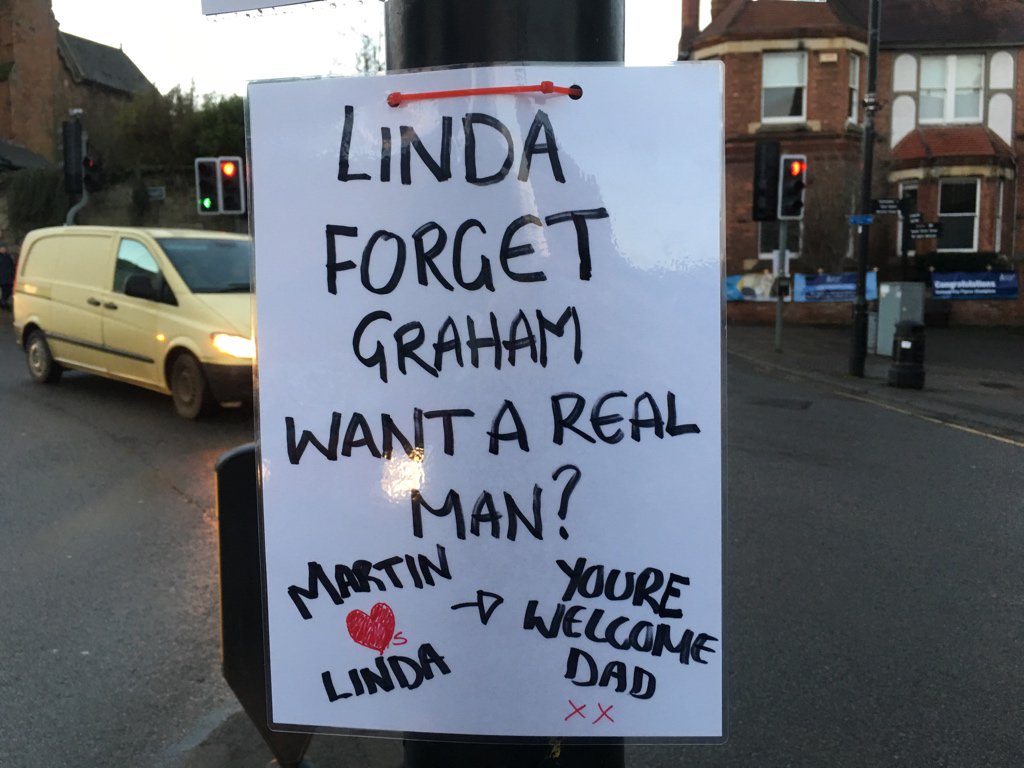 LINDA
FORGET
GRAHAM
WANT A REAL
MAN?
MARTIN
❤s
LINDA
YOURE
WELCOME
DAD
xx
Congratulations